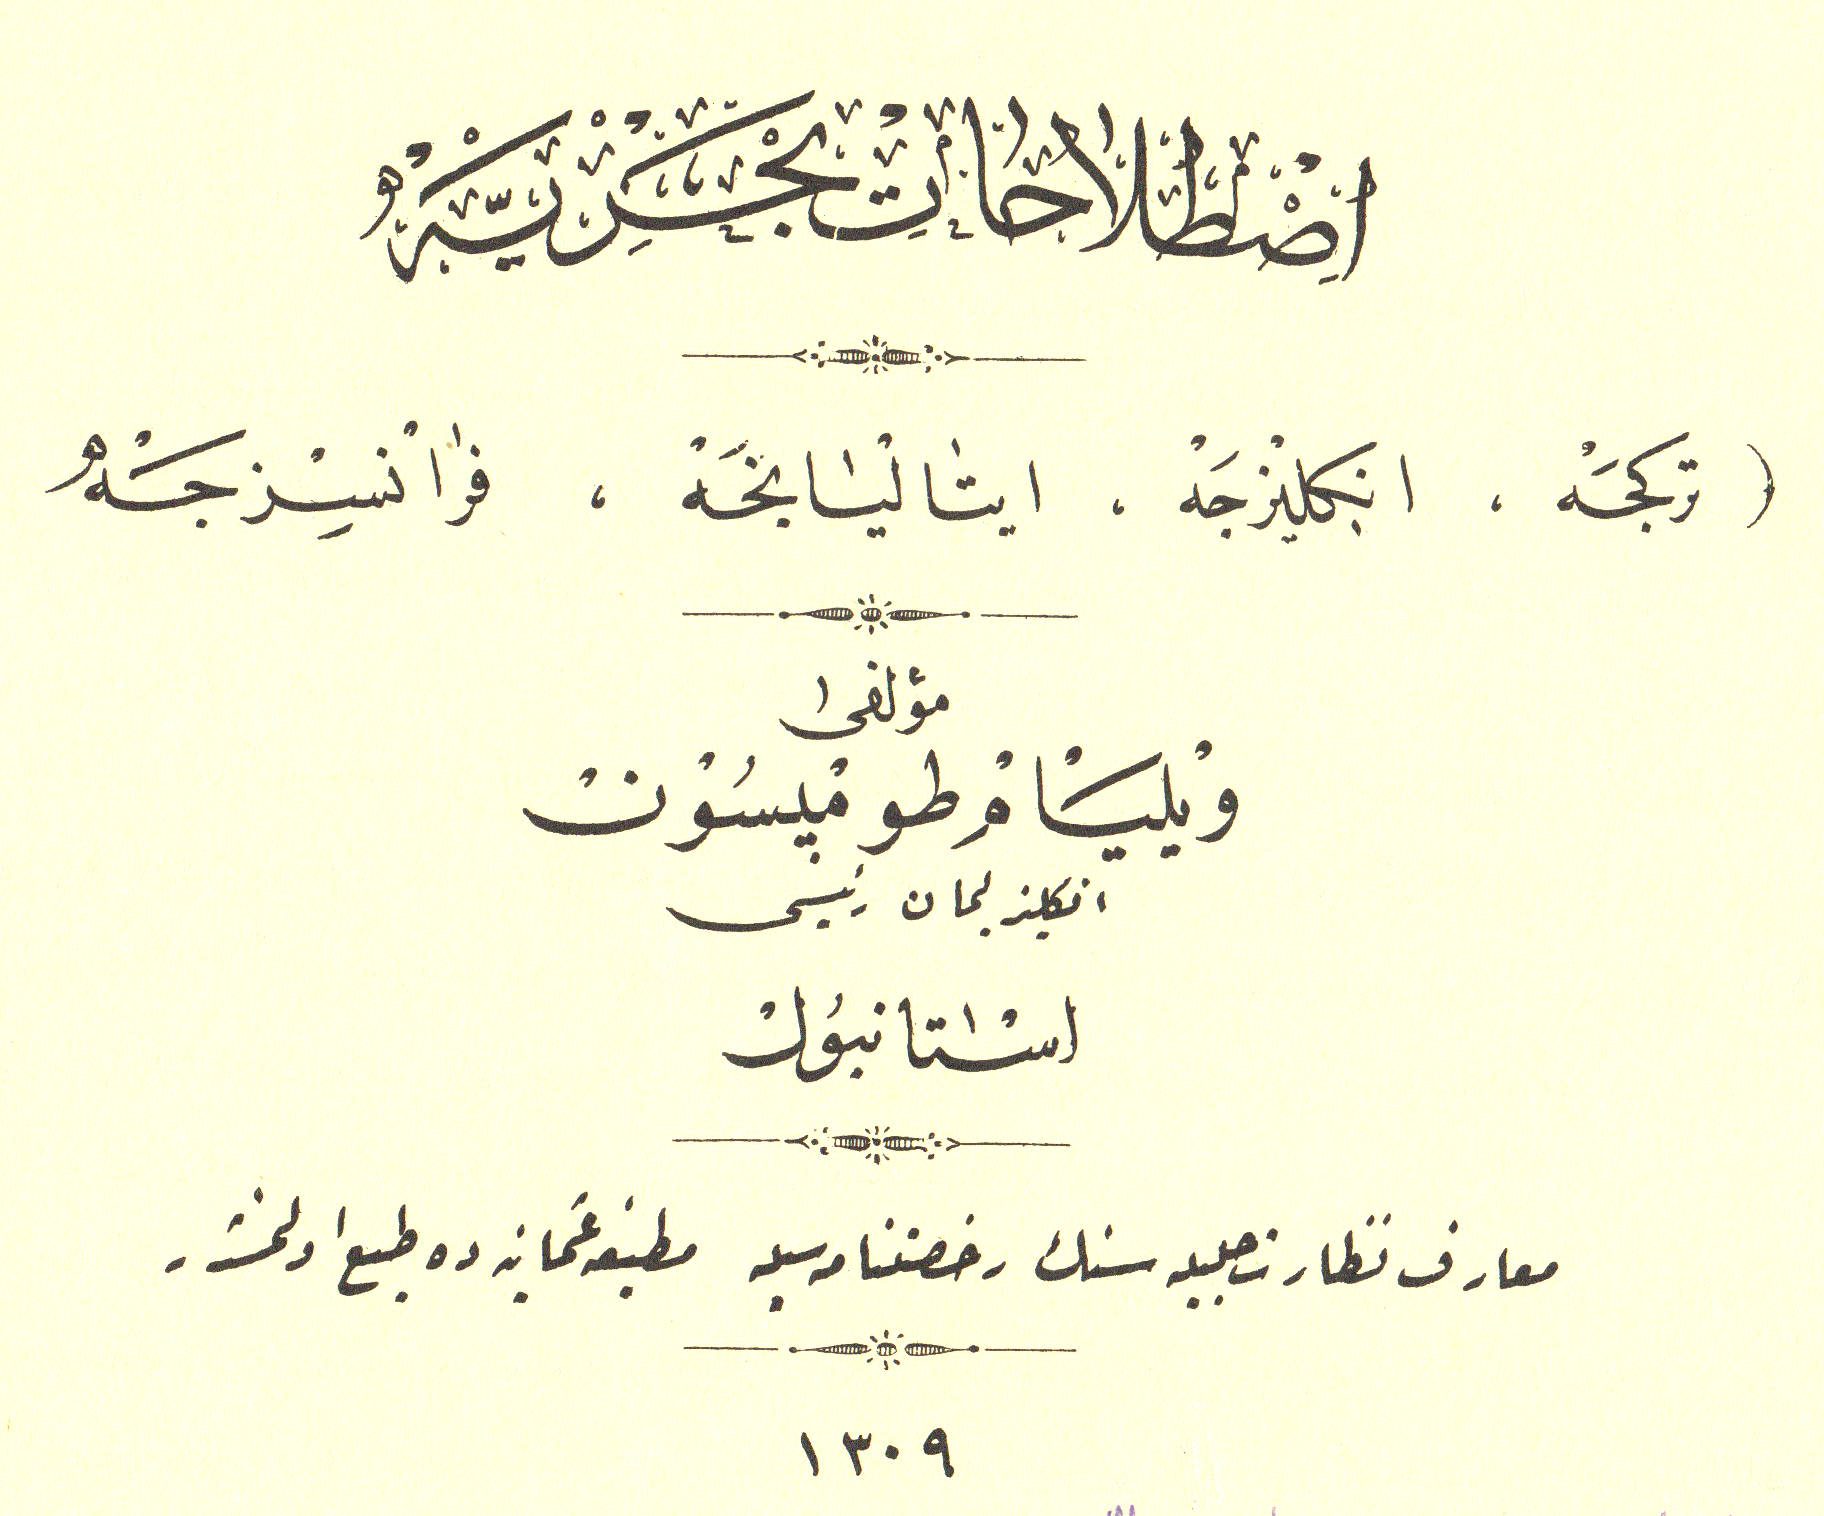 اِصْطِلَاحَاتِ بَحْرِيَّهْ
( تركجَهْ ، انكليزجَهْ ، ايتاليانجَهْ ، فرانسِزجَهْ
مؤلفى
ويليام طوميسون
انكليز ليمان رئيسى
استانبول
معارف نظارت جليله سنك رخصتنامه سيله مطبعه عثمانيه ده طبع اولنمشدر
١٣٠٩